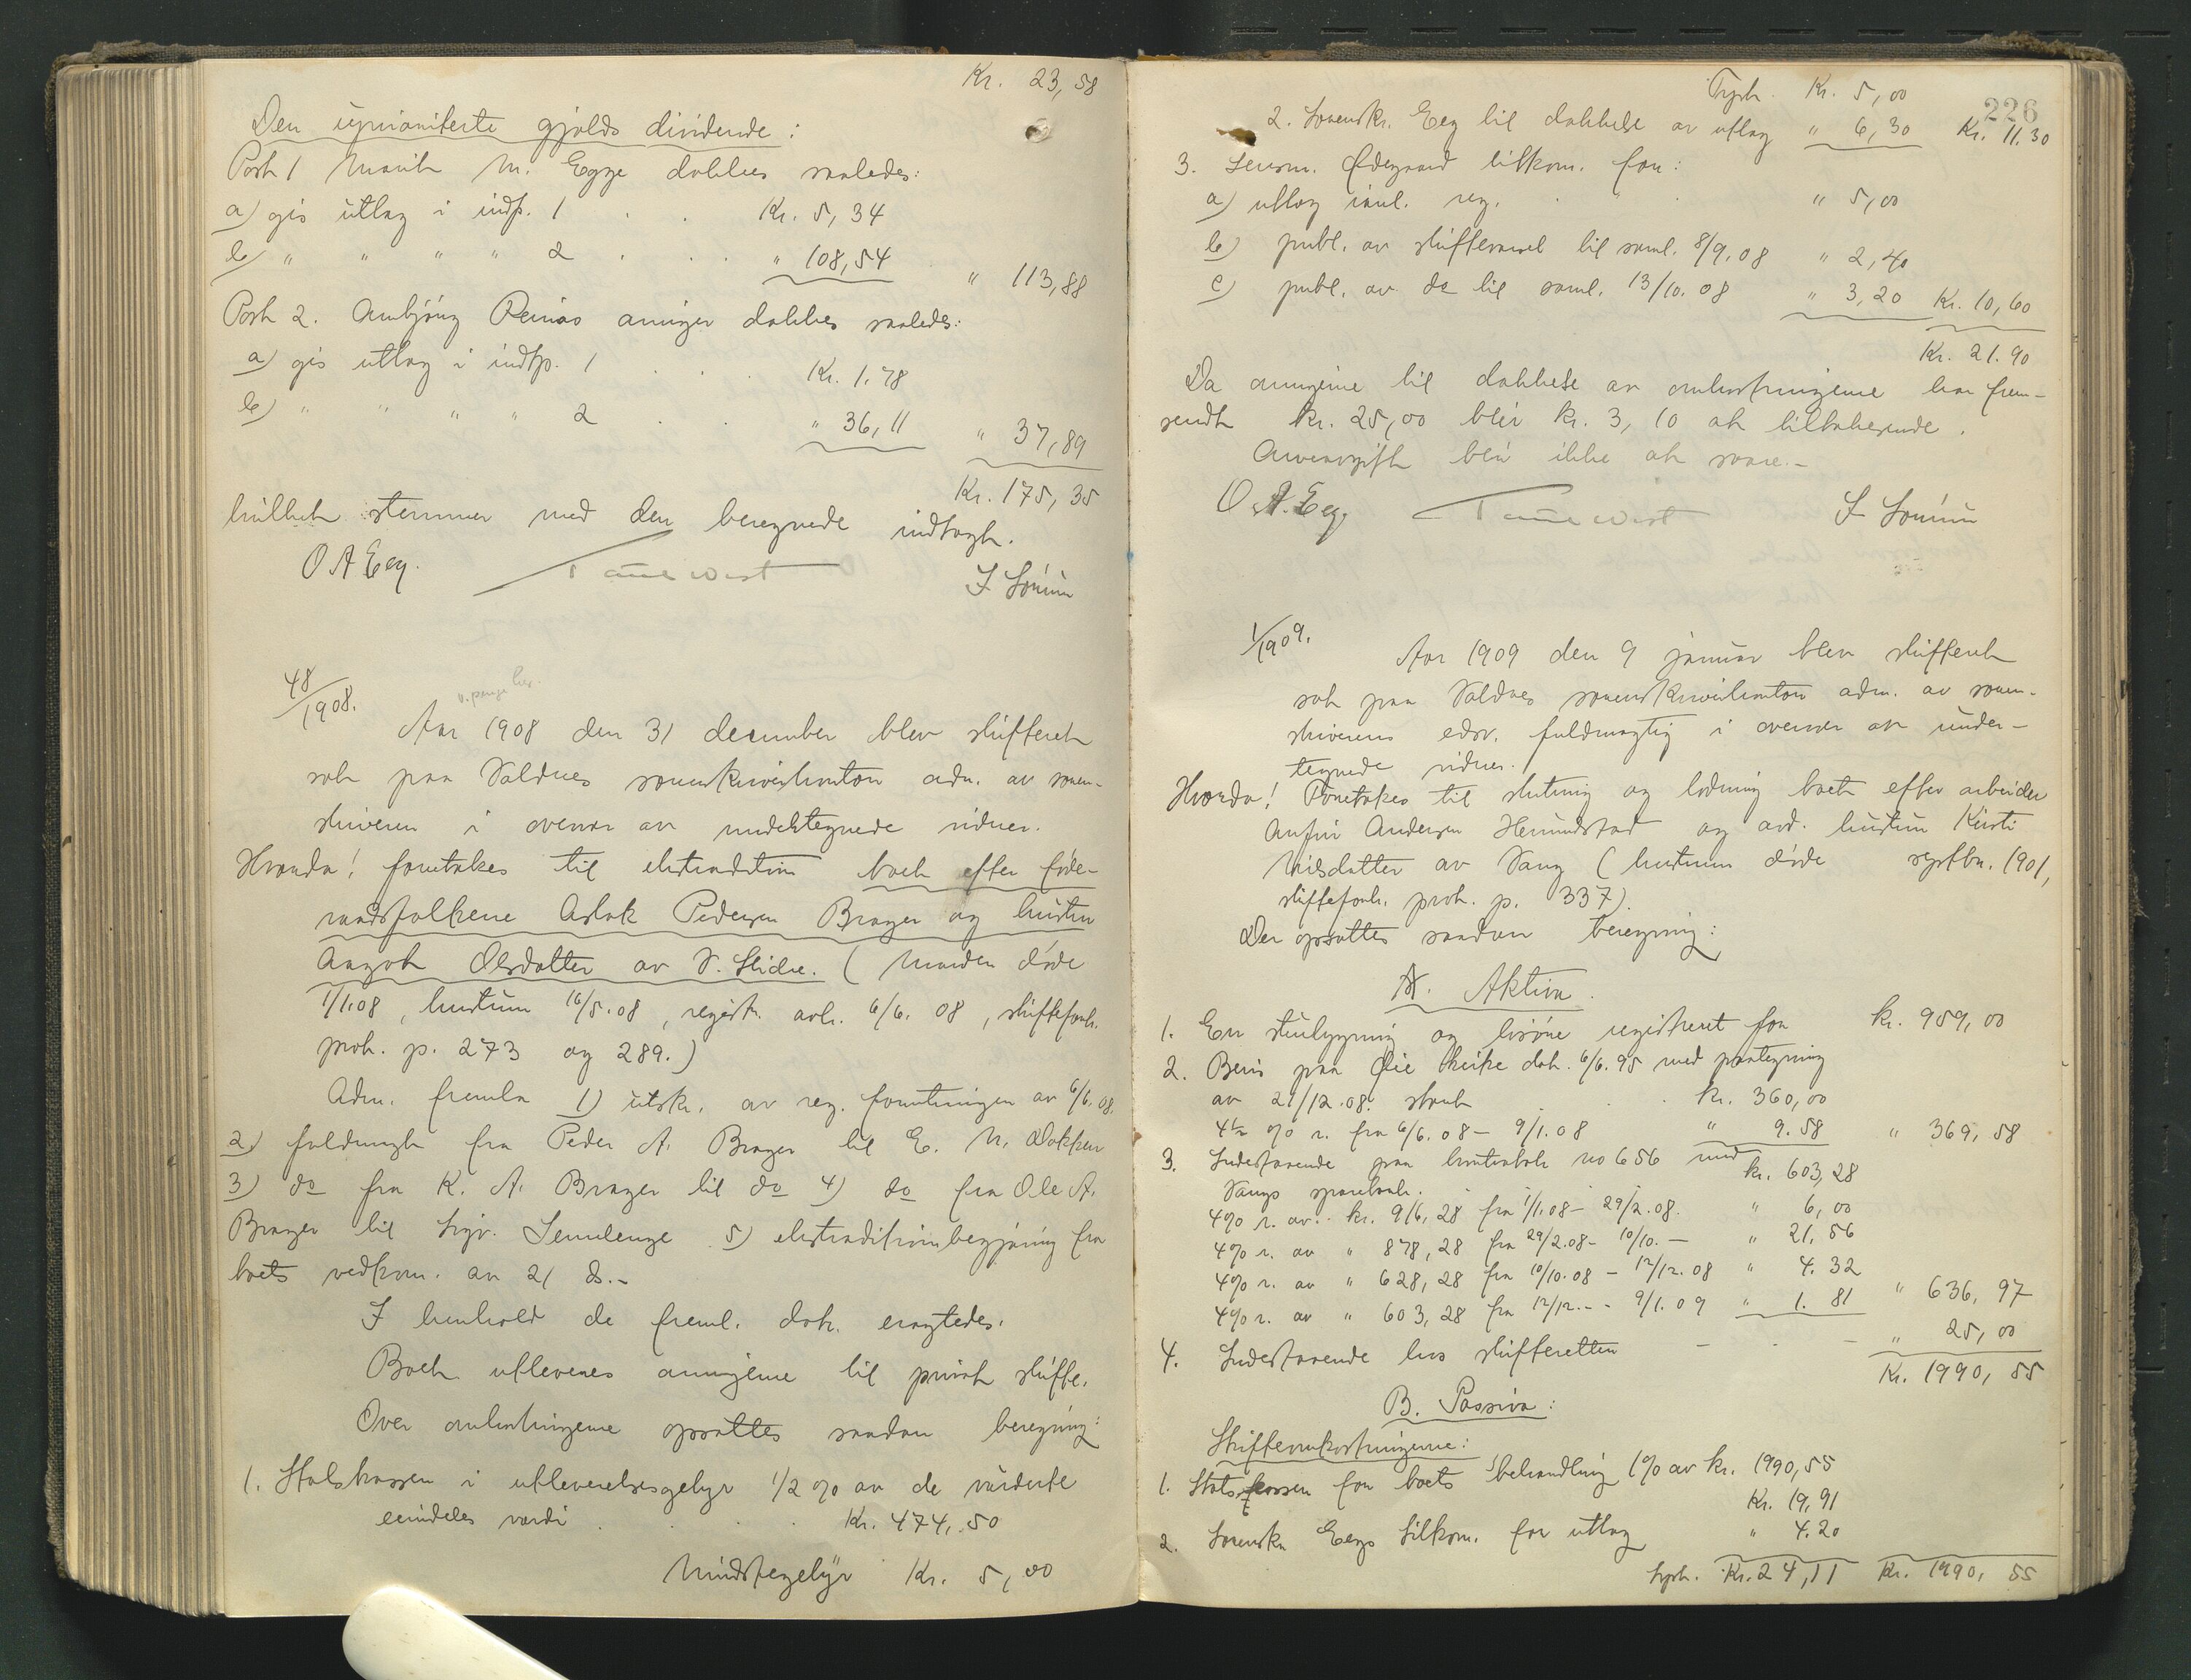 Kr. 23,58
Den upriviterte gjælds dividende:
Post 1 Marit M. Egge dækkes saaledes:
a) gis utlæg i indt. 1 . . Kr. 5,34
b) " " " " 2 . . . " 108,54 " 113,88
Post 2. Ambjörg Reinas arvinger dækkes saaledes:
a) gis utlæg i indtp. 1 . . . Kr. 1.78
b) " " " " 2 . . " 36,11 " 37,89
Kr. 175,35
hvilket stemmer med den beregnede indtægt.
O A Eeg.
48/1908.
Aar 1908 den 31 december blev skifteret
sat paa Valdres sorenskriverkontor adm. av soren-
skriveren i overvær av undertegnede vidner.
Hvorda! foretokes til ekstradition boet efter føde-
raadsfolkene Aslak Pedersen Brager og hustru
Aagot Olsdatter av V. Slidre. (Manden døde
1/1.08, hustruen 16/5.08, registr. avh. 6/6. 08, skifteforh.
prot. p. 273 og 289.)
Adm. fremla 1) utskr. av reg. forretningen av 6/6.08.
2) fuldmagt fra Peder A. Brager til E. N. Dokken
3) do fra K. A. Brager til do 4) do fra Ole A.
Brager til 5) ekstraditionsbegjæring fra
boets vedkom. av 21 ds.-
I henhold de freml. dok. eragtedes.
Boet utleveres arvingerne til privat skifte.
Over omkostningerne opsattes saadan beregning:
1. Statskassen i utleverelsesgebyr 1/2 % av de vurderte
eiendeles værdi . . . Kr. 474,50
Mindstegebyr Kr. 5,00
226
Trpt. Kr. 5,00
2. Sorenskr. Eeg til dækkelse av utlæg " 6,30 Kr. 11.30
3. Lensm. Ødegaard tilkom. for:
a) utlæg inkl. reg. . . . " 5,00
b) publ. av skiftevarsel til saml. 8/9.08 " 2,40
c) publ. av do til saml. 13/10.08 " 3,20 Kr. 10,60
Kr. 21.90
Da arvingerne til dækkelse av omkostningerne har frem-
sendt kr. 25,00 blir kr. 3,10 at tilbakesende.
Arveavgift blir ikke at svare.-
O. A. Eeg.
1/1909.
Aar 1909 den 9 januar blev skifteret
sat paa Valdres sorenskriverkontor adm. av soren-
skriverens edsv. fuldmægtig i overvær av under-
tegnede vidner.
Hvorda! Foretokes til slutning og lodning boet efter arbeider
Anfin Andersen Hermundstad og avd. hustru Kirsti
Nilsdatter av Vang (hustruen døde septbr. 1901,
skifteforh. prot. p. 337).
Der opsattes saadan beregning:
A. Aktiva.
1. En stuebygning og løsøre registreret for kr. 959,00
2. Bevis paa Øie kirke dat. 6/6.95 med paategning
av 21/12.08. stort . . . kr. 360,00
4½ % r. fra 6/6.08 - 9/1.08 " 9.58 " 369,58
3. Indestaaende paa kontrabok no 656 med
Vangs sparebank. . . kr. 603,28
4% r. av. kr. 916,28 fra 1/1.08 - 29/2.08. " 6,00
4% r. av " 878,28 fra 29/2.08 - 10/10.- " 21,56
4% r. av " 628,28 fra 10/10.08 - 12/12.08 " 4.32
4% r. av " 603,28 fra 12/12.- - 9/1.09 " 1.81 " 636,97
4. Indestaaende hos skifteretten - - - " 25,00
Kr. 1990,55
B. Passiva:
Skifteomkostningerne:
1. Statskassen for boets behandling 1% av kr. 1990,55
Kr. 19,91
2. Sorenskr. Eegs tilkom. for utlæg " 4.20
trpt. Kr. 24,11 Kr. 1990,55